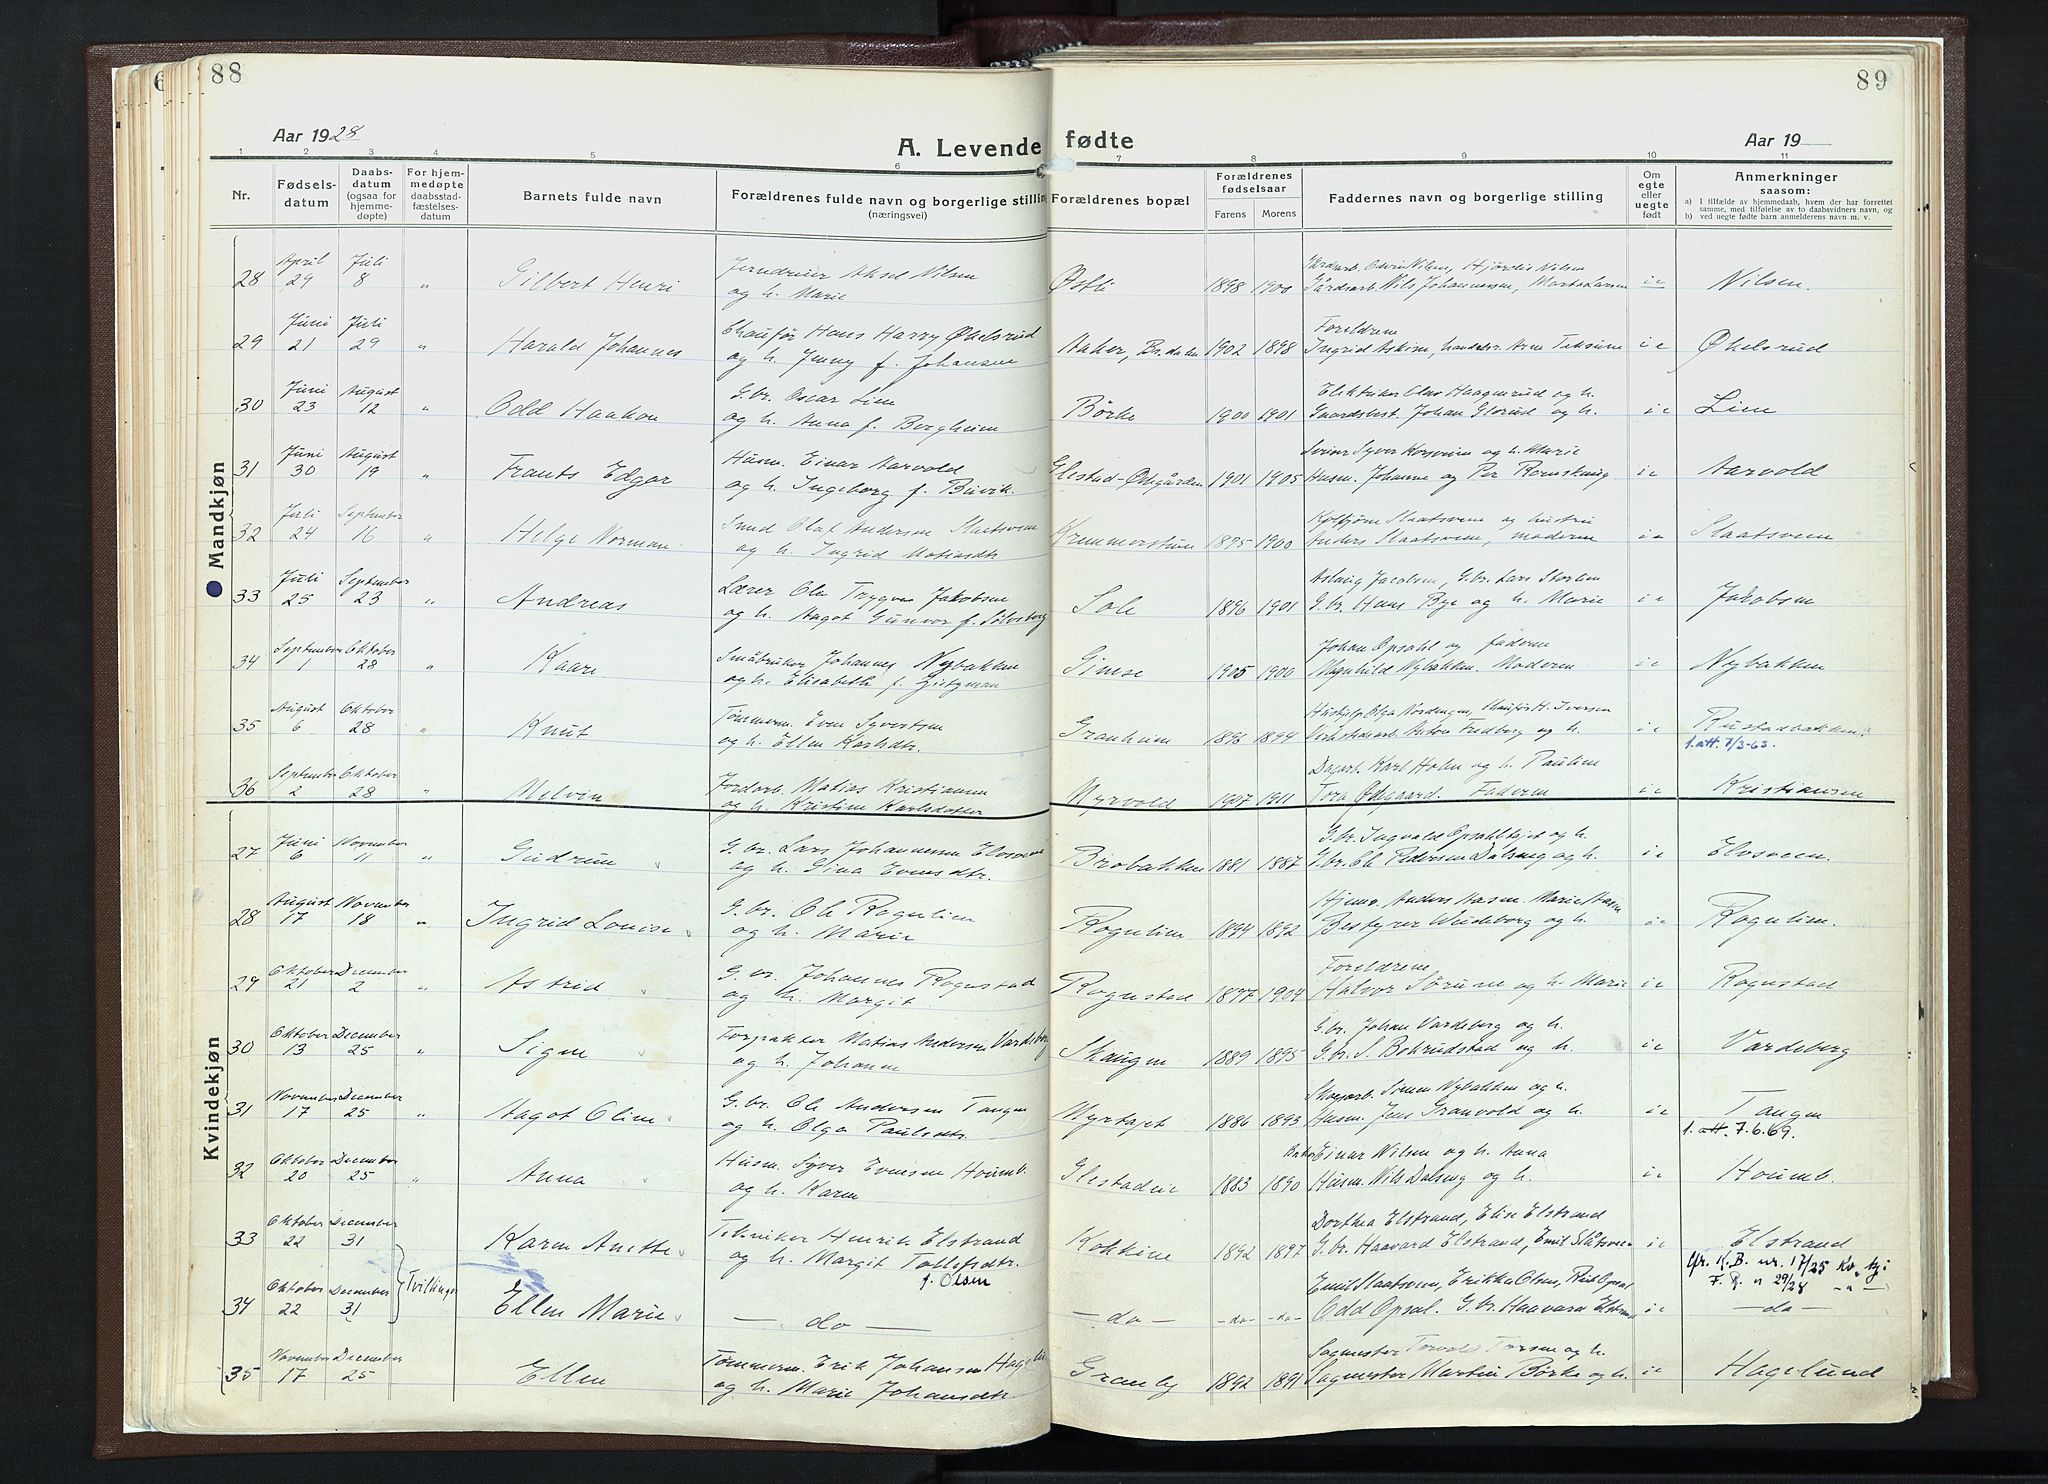 88
89
Aar 1928
A. Levende fødte
Aar 19
1 2 3 4 5 6 7 8 9 10 11
Nr.
Fødsels-
datum
Daabs-
datum
(ogsaa for
hjemme-
døpte)
For hjem-
medøpte
daabsstad-
fæstelses-
datum
Barnets fulde navn
Forældrenes fulde navn og borgerlige stilling
(næringsvei)
Forældrenes bopæl
Forældrenes
fødselsaar
Farens Morens
Faddernes navn og borgerlige stilling
Om
egte
eller
uegte
født
Anmerkninger
saasom:
a) I tilfælde av hjemmedaab, hvem der har forrettet
samme, med tilføielse av to daabsvidners navn, og
b) ved uegte fødte barn anmelderens navn m. v.
Mandkjøn
April Juli
28 29 8 " Gilbert Henri Aksel Nilsen
og h. Marie
Østli 1898 1900
Gårdsarb. Nils Johannessen, Marta Larsen i e Nilsen.
Juni Juli
29 21 29 " Harald Johannes Chaufør Hans Harry Økelsrud
og h. Jenny f. Johansen
Aaker, 1902 1898 Foreldrene
Ingrid Askim, i e Økelsrud
Juni August
30 23 12 " Odd Haakon G.br. Oscar Lien
og h. Anna f. Bergheim
Børke 1900 1901 Elektriker Olav Haagenrud og h.
Gaardsbest. Johan Glorud og h. i e Lien
Juni August
31 30 19 " Frants Edgar Husm. Einar Aarvold
og h. Ingeborg f. Buvik.
Elstad-Ødegården 1901 1905 Syver Korsveien og h. Marie
Husm. Johanne og Per Romskaug i e Aarvold
Juli September
32 24 16 " Helge Norman Smed Olaf Andersen Slaatsveen
og h. Ingrid Matiasdtr
1895 1900 Kolbjørn Slaatsveen og hustru
Anders Slaatsveen, moderen i e Slaatsveen
Juli September
33 25 23 " Andreas Lærer Ola Trygve Jakobsen
og h. Aagot Gunvor f. Sølvsberg
Sole 1896 1901 Aslaug Jacobsen, G.br. Lars Storlien
G.br. Hans Bye og h. Marie i e Jakobsen
September Oktober
34 1 28 " Kaare Småbruker Johannes Nybakken
og h. Elisabeth f.
1905 1900 Johan Opsahl og faderen
Magnhild Nybakken. Moderen i e Nybakken
August Oktober
35 6 28 " Knut Tømmerm. Even Syvertsen
og h. Ellen Karlsdtr.
Granheim 1895 1894 Olga Nordengen, Chaufør H. Iversen
Anton Fredborg og h. i e Rustadbakken.
1. att. 7/3-63.
September Oktober
36 2 28 " Melvin Jordarb. Matias Kristiansen
og h. Kristine Karlsdatter
Myrvold 1907 1911 Dagarb. Karl Holen og h. Pauline
Tora Ødegaard. Faderen i e Kristiansen
Kvindekjøn
Juni November
27 6 11 " Gudrun G.br. Lars Johannessen Elvsveen
og h. Gina Evensdtr.
Brobakken 1881 1887 G.br. Ingvald Opsahlhøjet og h.
G.br. Ole Pedersen Dalseng og h. i e Elvsveen.
August November
28 17 18 " Ingrid Louise G.br. Ole Rognlien
og h. Marie
Rognlien 1894 1892
Bestyrer Weideborg og h. i e Rognlien.
Oktober December
29 21 2 " Astrid G.br. Johannes Rognstad
og h. Margit
Rognstad 1877 1904 Foreldrene
Halvor Sørune og h. Marie i e Rognstad
Oktober December
30 13 25 " Signe Forpakter Matias Andersen Vardeberg
og h. Johanne
Skaugen 1889 1895 G.br. Johan Vardeberg og h.
G.br. S. og h. i e Vardeberg
November December
31 17 25 " Aagot Oline G.br. Ole Andersen Tangen
og h. Olga Paulsdtr.
Myrhøjet 1886 1893 Skogsarb. Simen Nybakken og h.
Husm. Jens Granvold og h. i e Tangen
1. att. 7.6.69.
Oktober December
32 20 25 " Anna Husm. Syver Evensen Houmb.
og h. Karen
Glestadeie 1883 1890 Einar Nilsen og h. Anna
Husm. Nils Dalseng og h. i e Houmb.
Oktober December
33 22 31 Karen Anette Tekniker Henrik Elstrand
og h. Margit Tollefsdtr.
f. Olsen
1892 1897 Dorthea Elstrand, Elise Elstrand
G.br. Haavard Elstrand, Emil Slåtsveen i e Elstrand
Cfr. K.B. nr. 17/25 Kv. kj:
F.R. n 29/28 - " -
Tvillinger
Oktober December
34 22 31 Ellen Marie — do —
— do — -do- -do- Emil Slaatsveen, Erikka Olsen,
Odd Opsal. G.br. Haavard Elstrand i e — do —
November December
35 17 25 Ellen Tømmerm. Erik Johansen Hagelund
og h. Marie Johansdtr
Granly 1892 1891 Sagmester Torvald Tørsen og h.
Sagmester Martin Børke og h. i e Hagelund